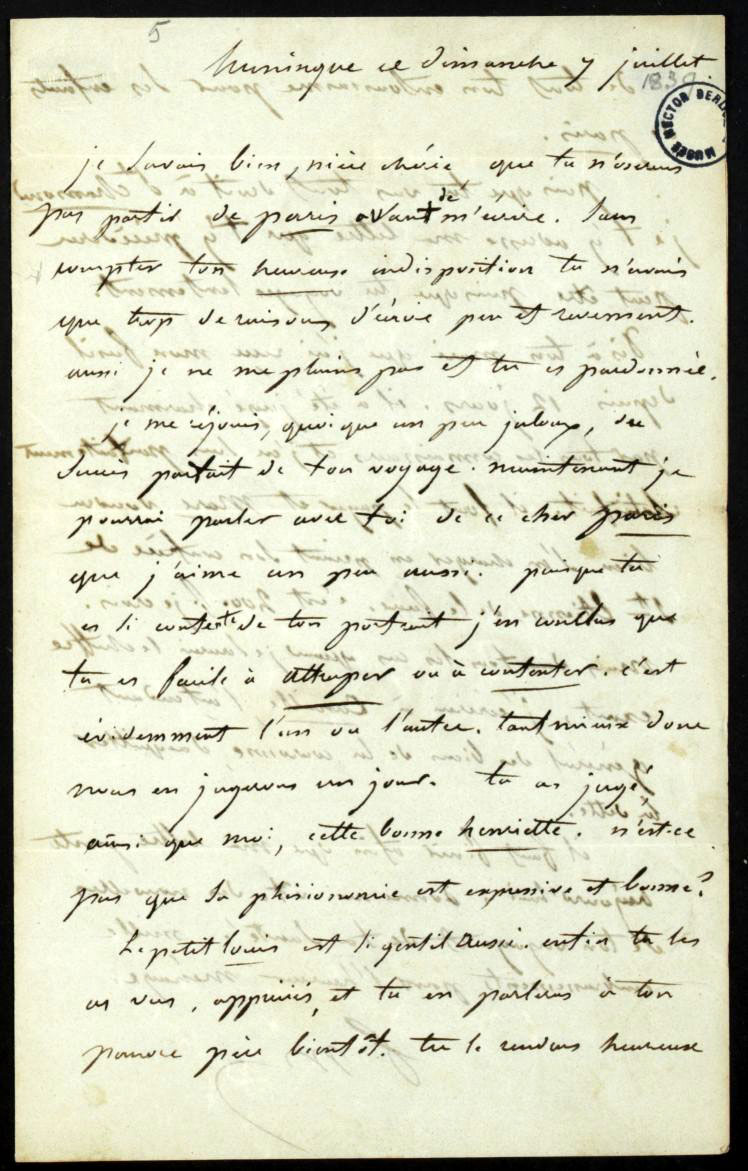 5
huningue ce dimanche 7 juillet
1839
MUSÉE HECTOR BERLIOZ
je savais bien, nièce chérie, que tu n'oserais
pas partir de paris avant de m'écrire. Sans
compter ton heureuse indisposition tu n'avais
que trop de raisons d'écrire peu et rarement.
aussi je ne me plains pas et tu es pardonnée.
je me réjouis, quoique un peu jaloux, du
succès parfait de ton voyage. maintenant je
pourrai parler avec toi de ce cher paris
que j'aime un peu aussi. puisque tu
es si contente de ton portrait j'en conclus que
tu es facile à attraper ou à contenter. c'est
évidemment l'un ou l'autre. tant mieux donc
nous en jugerons un jour. tu as jugé
ainsi que moi, cette bonne henriette. n'est-ce
pas que sa phisionomie est expressive et bonne?
Le petit louis est si gentil aussi. enfin tu les
as vus, appréciés, et tu en parleras à ton
pauvre père bientôt. tu le rendras heureux